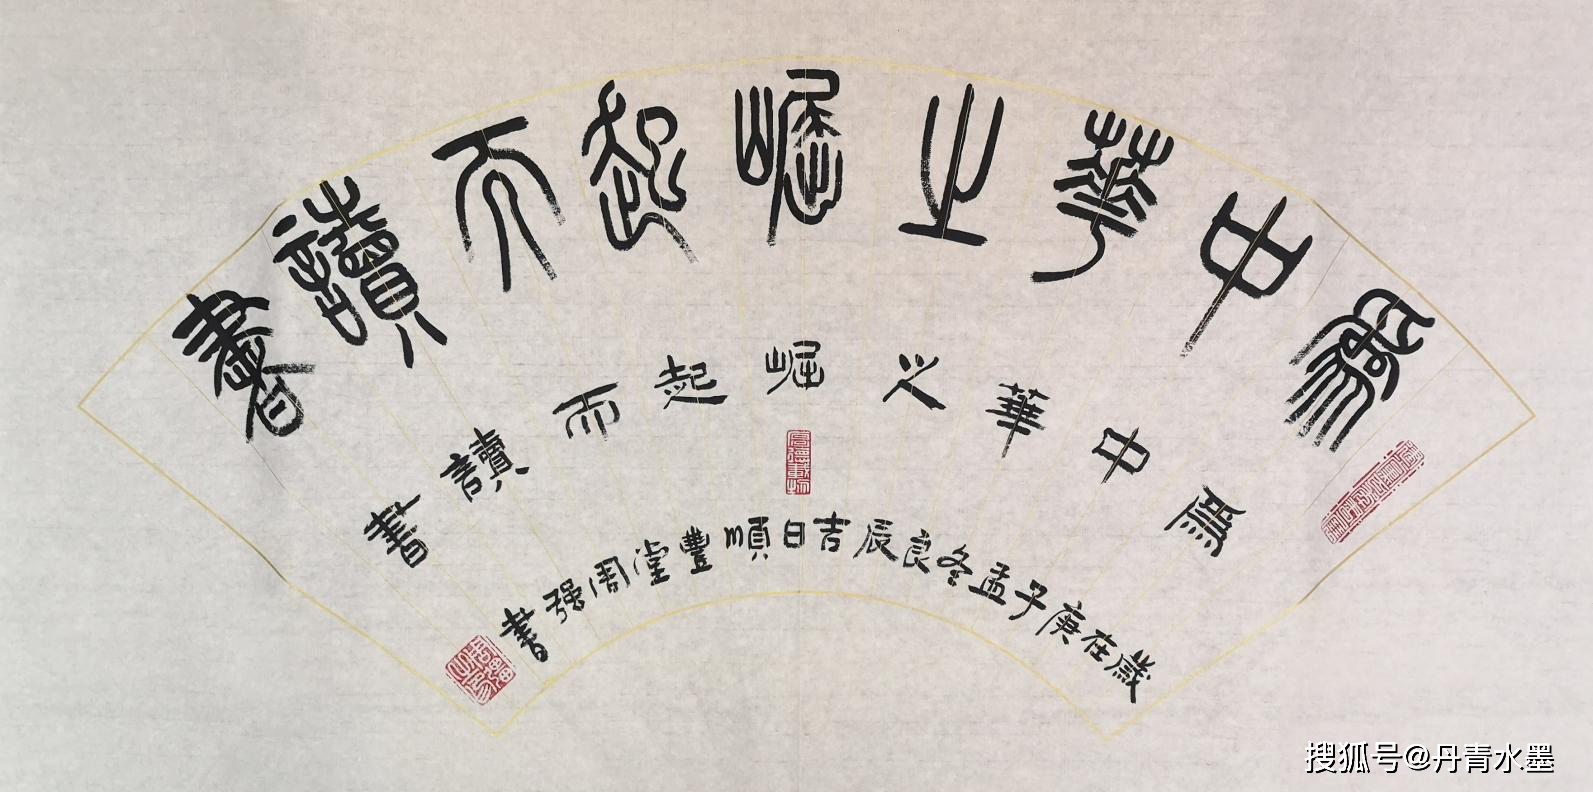 爲中華之崛起而讀書
爲中華之崛起而讀書
厚德載物
歲在庚子孟冬良辰吉日順豐堂周强書
搜狐号@丹青水墨